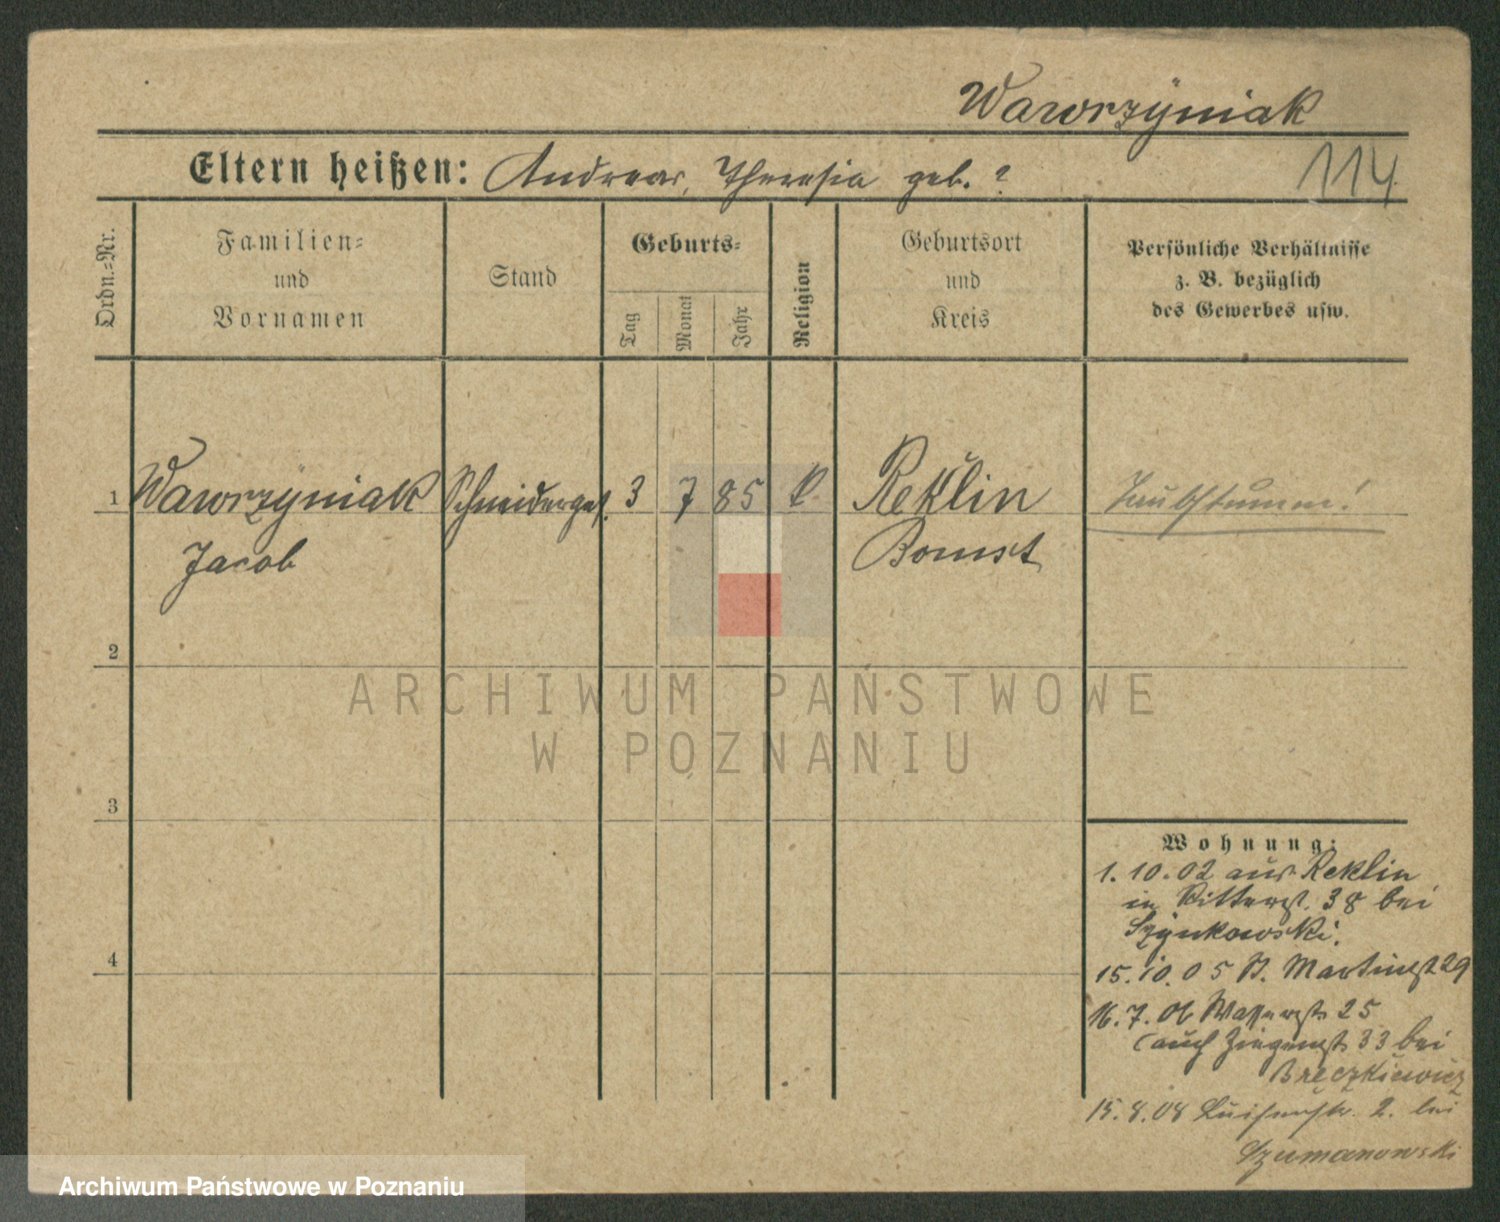 Wawrzÿniak
Eltern heißen: Andreas, Theresia geb. ?
114
Ordn.-Nr.
Familien-
und
Vornamen
Stand
Geburts-
Tag
Monat
Jahr
Religion
Geburtsort
und
Kreis
Persönliche Verhältnisse
z. B. bezüglich
des Gewerbes usw.
1 Wawrzÿniak Schneiderges. 3 7 85 k. Reklin Taubstumm!
Jacob Bomst
2
ARCHIWUM PAŃSTWOWE
W POZNANIU
3
4
Wohnung:
1. 10. 02 aus Reklin
in Ritterst. 38 bei
Szynkowski.
15. 10. 05 St. Martinst 29
16. 7. 06 Wasserst 25
(auch Ziegenst 33 bei
Breczkiewicz
15. 8. 08 Luisenstr. 2. bei
Szumanowski
Archiwum Państwowe w Poznaniu